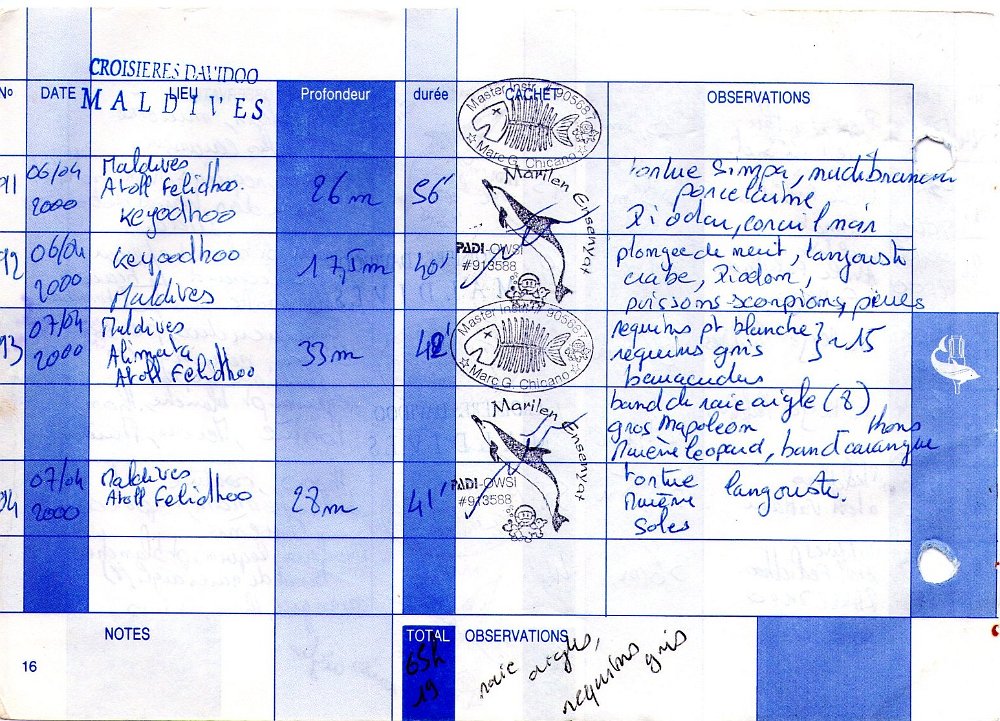 CROISIERES DAVIDOO
MALDIVES
N° DATE LIEU Profondeur durée CACHET OBSERVATIONS
Master Instr. # 905687
Marc G. Chicano
91 06/04 2000
Maldives
Atoll Felidhoo.
Keyodhoo
26 m
56'
Marilen Ensenyat
PADI-OWSI
#913588
tortue simpa, nudibranche
porcelaine
Diodon, corail noir
92 06/04 2000
Keyodhoo
Maldives
17,5m
40'
plongée de nuit, langouste
crabe, Diodon,
poissons-scorpions, pierres
93 07/04 2000
Maldives
Alimata
Atoll Felidhoo
33m
42'
Master Instr. # 905687
Marc G. Chicano
requins pt blanche } ~ 15
requins gris
barracudas
banc de raie aigle (8)
gros Napoléon thons
Murène léopard, banc carangue
94 07/04 2000
Maldives
Atoll Felidhoo
28m
41'
Marilen Ensenyat
PADI-OWSI
#913588
tortue
Murène langouste.
soles
NOTES
16
TOTAL
65h
19
OBSERVATIONS
raie aigles,
requins gris